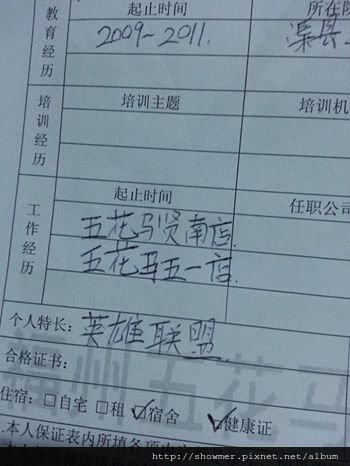 教育经历
起止时间 所在院
2009~2011. 渠县
培训经历
培训主题 培训机
工作经历
起止时间 任职公司
五花马贤南店.
五花马五一店.
个人特长：英雄联盟
合格证书：
住宿：□自宅□租☑宿舍 ☑健康证
.本人保证表内所填各项内
http://showmer.pixnet.net/album